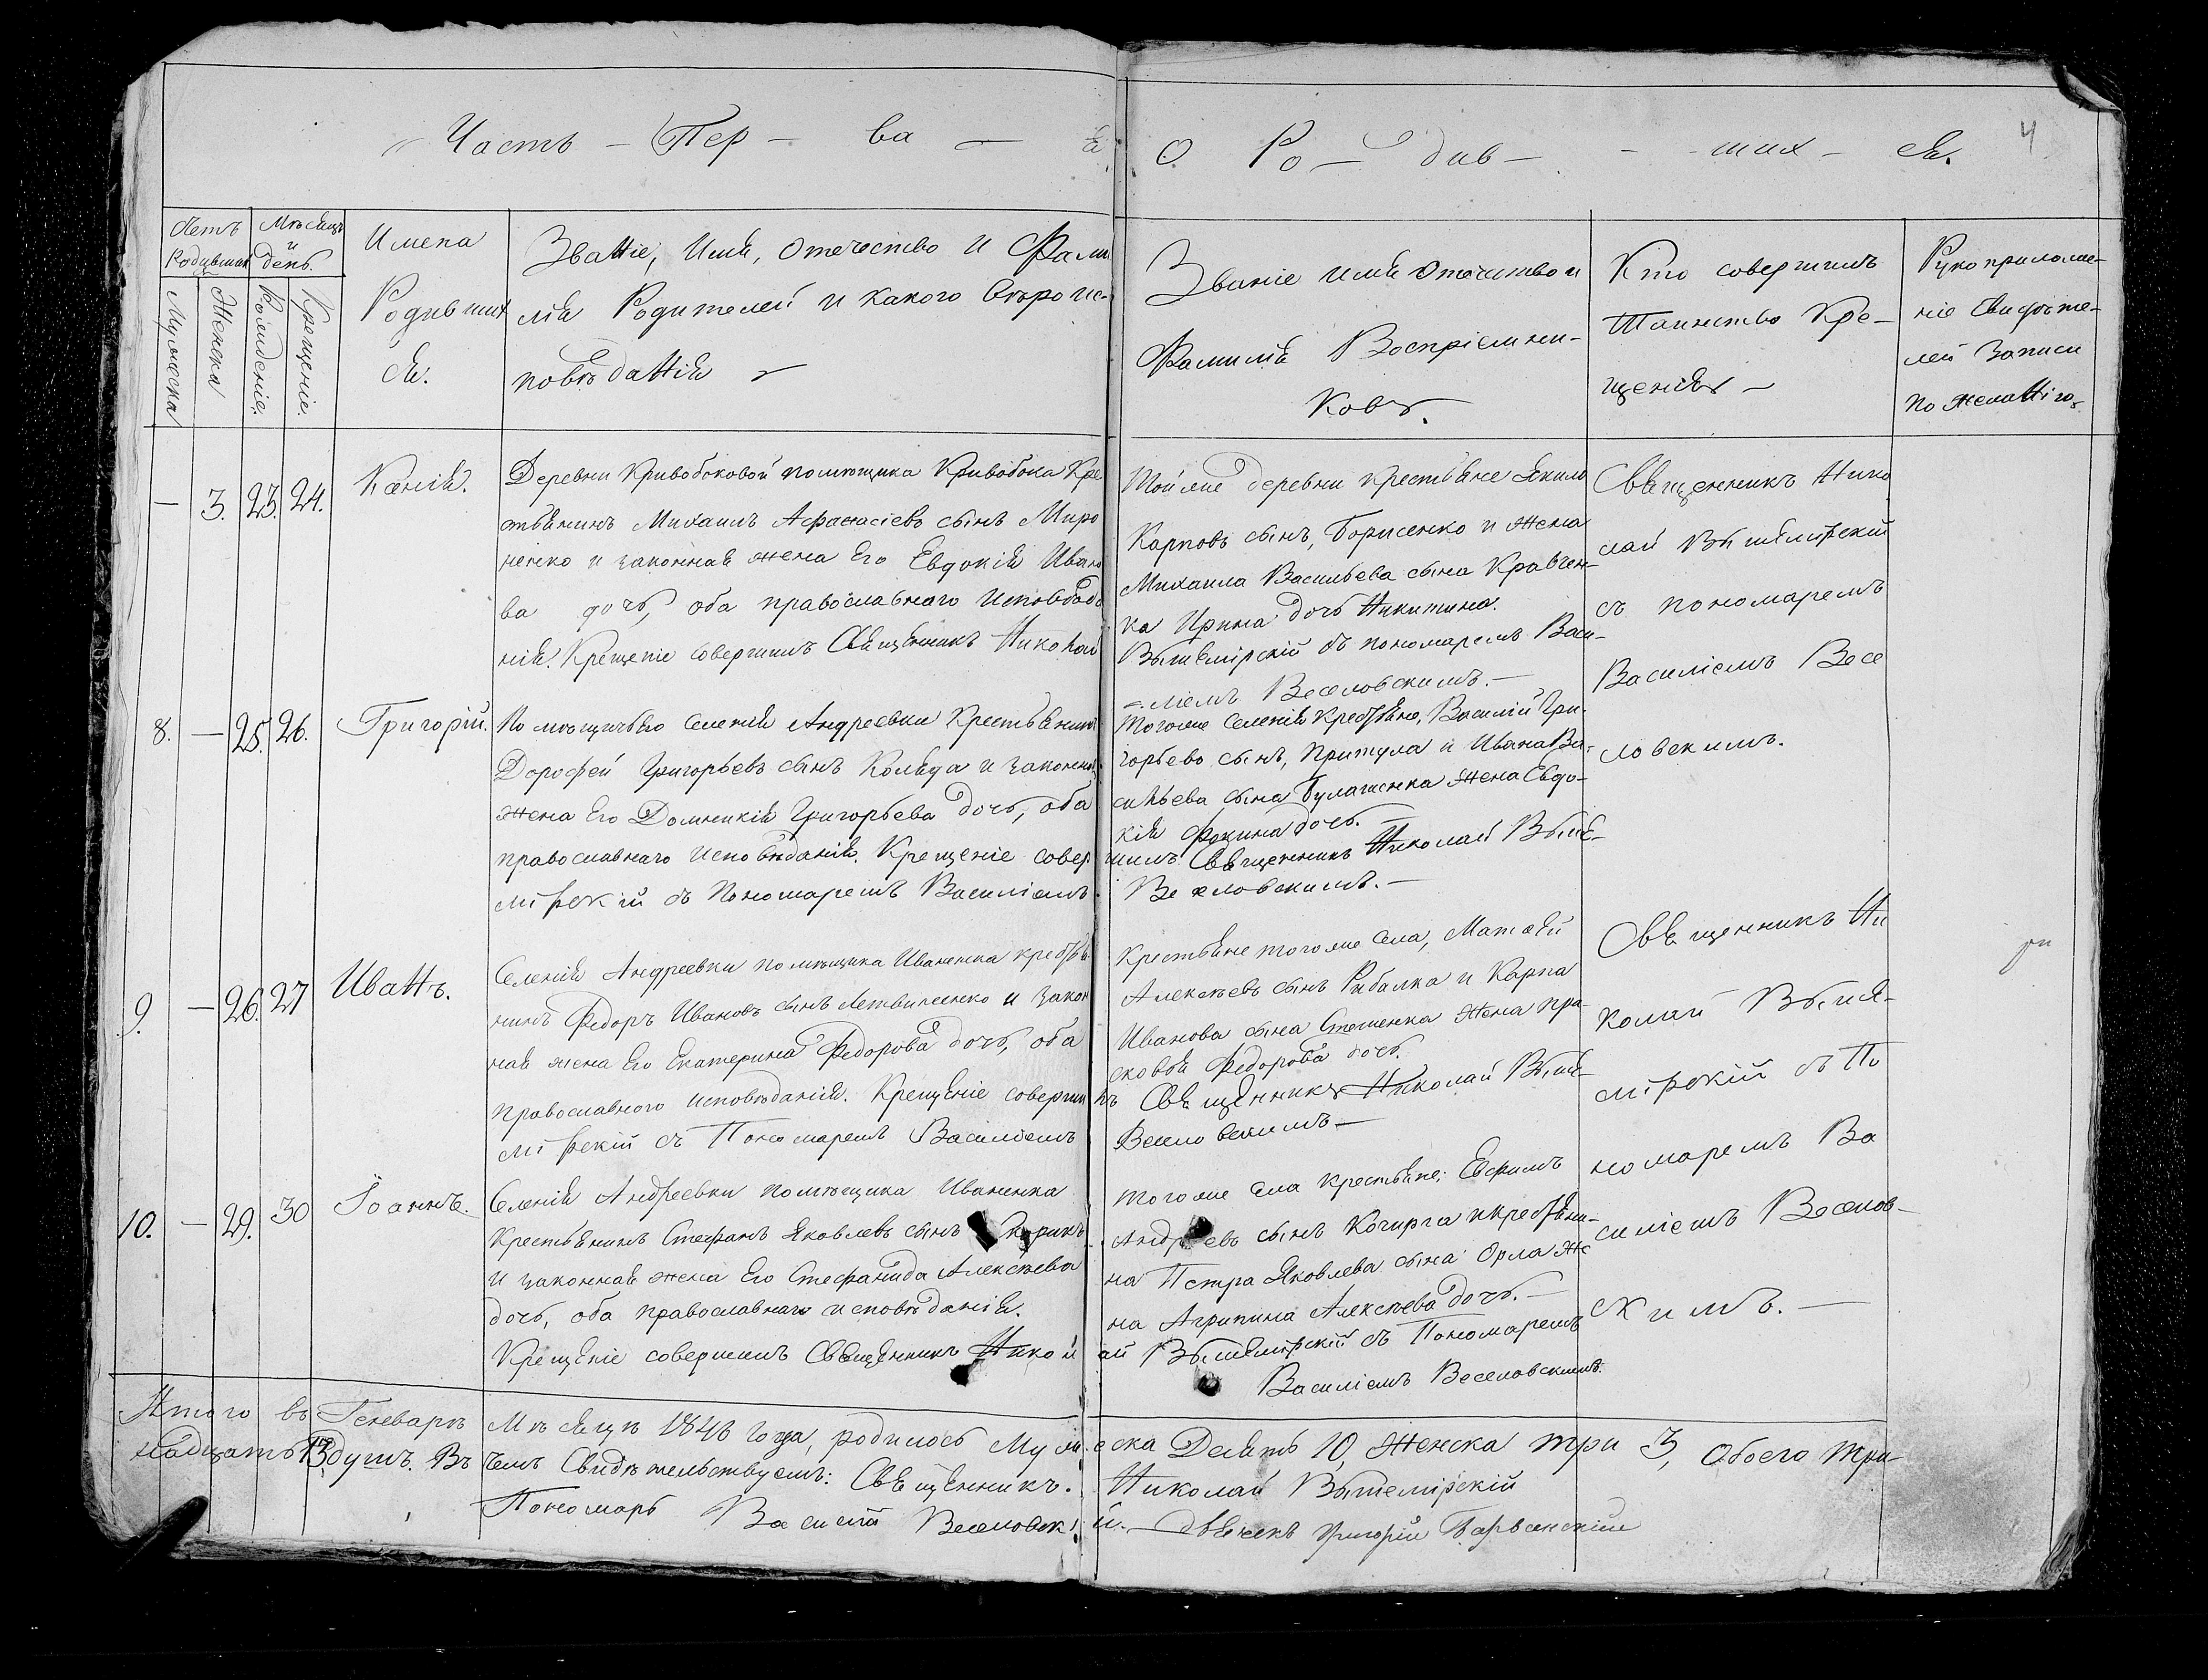 Часть – Пер – ва – я
О Ро – див – – ших – ся.
4
Летъ Родивших
Мѣсяцъ и день.
Мужеска
Женска
Рожденіе.
Крещеніе.
Имена
Родивших
ся.
Званіе, Имя, Отечество и Фами
лія Родителей и какого вѣроис-
повѣданія
Званіе имя отечество и
Фамилія Воспріемни-
ковъ.
Кто совершилъ
Таинство Кре-
щенія –
Рукоприложе-
ніе свидѣте-
лей записи
по желанію
– 3. 23. 24.
Ксенія.
Деревни Кривобоковой помѣщика Кривобока Кре
стьянинъ Михаилъ Афанасіевъ сынъ Миро
ненко и законная жена его Евдокія Ивано
ва дочь, оба православнаго исповѣда
нія. Крещеніе совершилъ Священникъ Николай
Той же деревни крестьяне Якимъ
Карповъ сынъ, Борисенко и жена
Михаила Васильева сына Кравчен-
ка Ирина дочь Никитина.
Вышемірскій съ пономаремъ Васи-
=ліемъ Веселовскимъ. –
Священникъ Нико
лай Вышемірскій
съ пономаремъ
Василіемъ Весе
ловскимъ.
8. – 25. 26.
Григорій.
Помѣщичьяго селенія Андреевки Крестьянинъ
Дорофей Григорьевъ сынъ Коляда и законная
жена его Домникія Григорьева дочь, оба
православнаго исповѣданія. Крещеніе совер
мірскій съ Пономаремъ Василіемъ
Того же селенія Крестьяне, Василій Гри-
горьевъ сынъ, Притула и Ивана Ва-
сильева сына жена Евдо-
кія Фокина дочь. –
шилъ Священникъ Николай Выше-
Веселовскимъ. –
9. – 26. 27
Иванъ.
Селенія Андреевки помѣщика Иваненка крестья
нинъ Федоръ Ивановъ сынъ Летвиненко и закон
ная жена его Екатерина Федорова дочь, оба
православнаго исповѣданія. Крещеніе соверши
мірскій съ Пономаремъ Василіемъ
Крестьяне того же села, Матвѣй
Алексѣевъ сынъ Рибалка и Карпа
Иванова сына Стешенка жена Пра-
сковья Федорова дочь.
лъ Священникъ Николай Выше-
Веселовскимъ –
Священникъ Ни
колай Выше-
мірскій съ По
номаремъ Ва
силіемъ Веселов-
скимъ. –
10. – 29. 30
Іоаннъ.
Селенія Андреевки помѣщика Иваненка
Крестьянинъ Стефанъ Яковлевъ сынъ
и законная жена его Стефанида Алексѣева
дочь, оба православнаго исповѣданія.
Крещеніе совершилъ Священникъ Никол
того же села крестьяне: Евфимъ
Андреевъ сынъ Кочирга и крестьяни-
на Петра Яковлева сына Орла же
на Агрипина Алексѣева дочь. –
ай Вышемірскій съ Пономаремъ
Василіемъ Веселовскимъ.
Итого въ Геневарѣ Мѣсяцѣ 1846 года, родилось Муже ска Десять 10, Женска три 3, Обоего три-
надцать 13 душъ. Въ чемъ Свидѣтельствуемъ: Священникъ. Николай Вышемірскій
Пономарь Василій Веселовскі й. – Дьячекъ Григорій